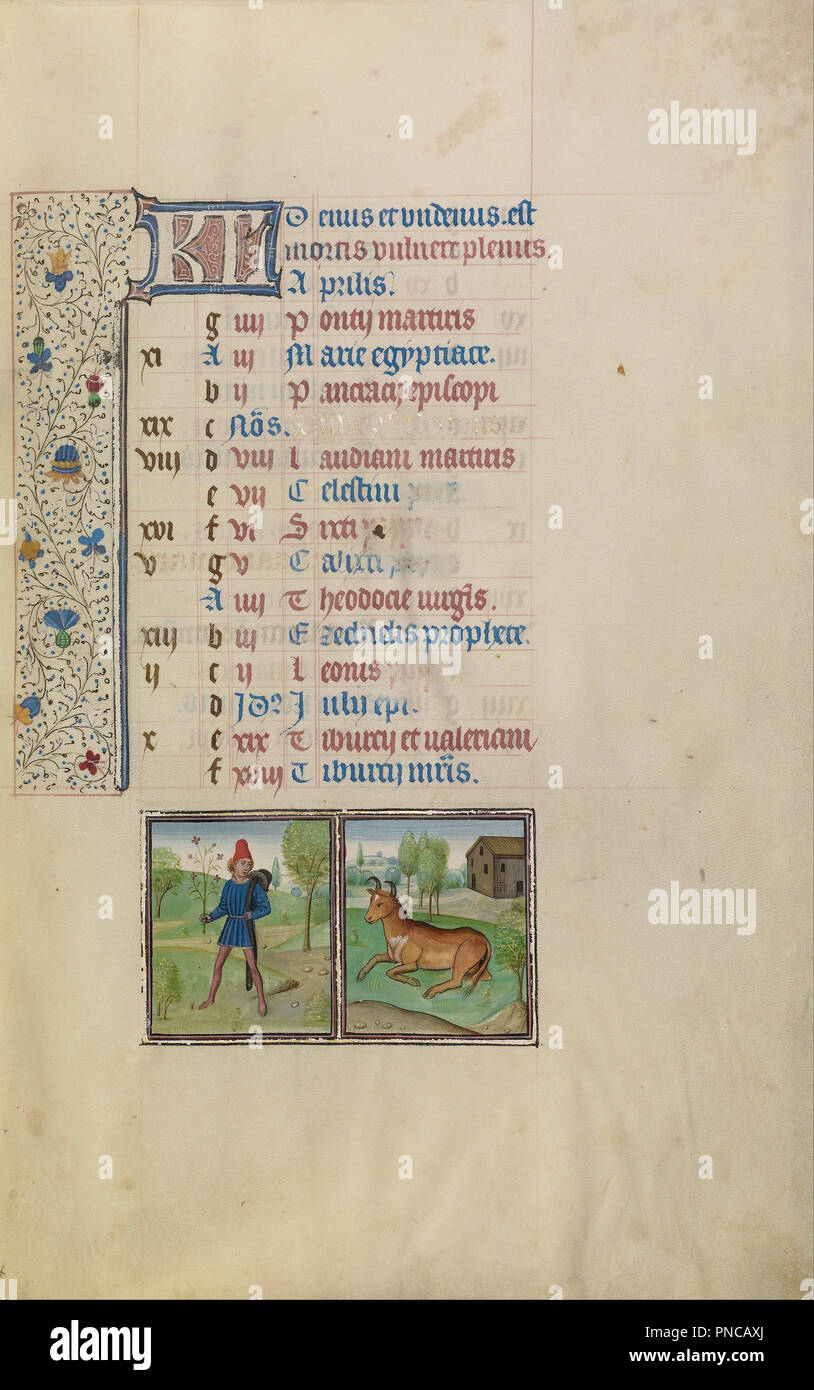 KL Denus et vndenus. est
mortis vulnere plenus
Aprilis.
g iiij Pontij martiris
xi A iij Marie egyptiace.
b ij Pancracij episcopi
xix c Nōs.
viij d viij Laudiani martiris
e vij Celestini
xvi f vi Sixti
v g v Calixti
A iiij Theodocie uirgĩs.
xiij b iij Ezechielis prophete.
ij c ij Leonis
d Jd9 Julij epi.
x e xix Tiburcij et ualeriani
f xviij Tiburcij mr̃is.
alamy
alamy
alamy
Image ID: PNCAXJ
www.alamy.com